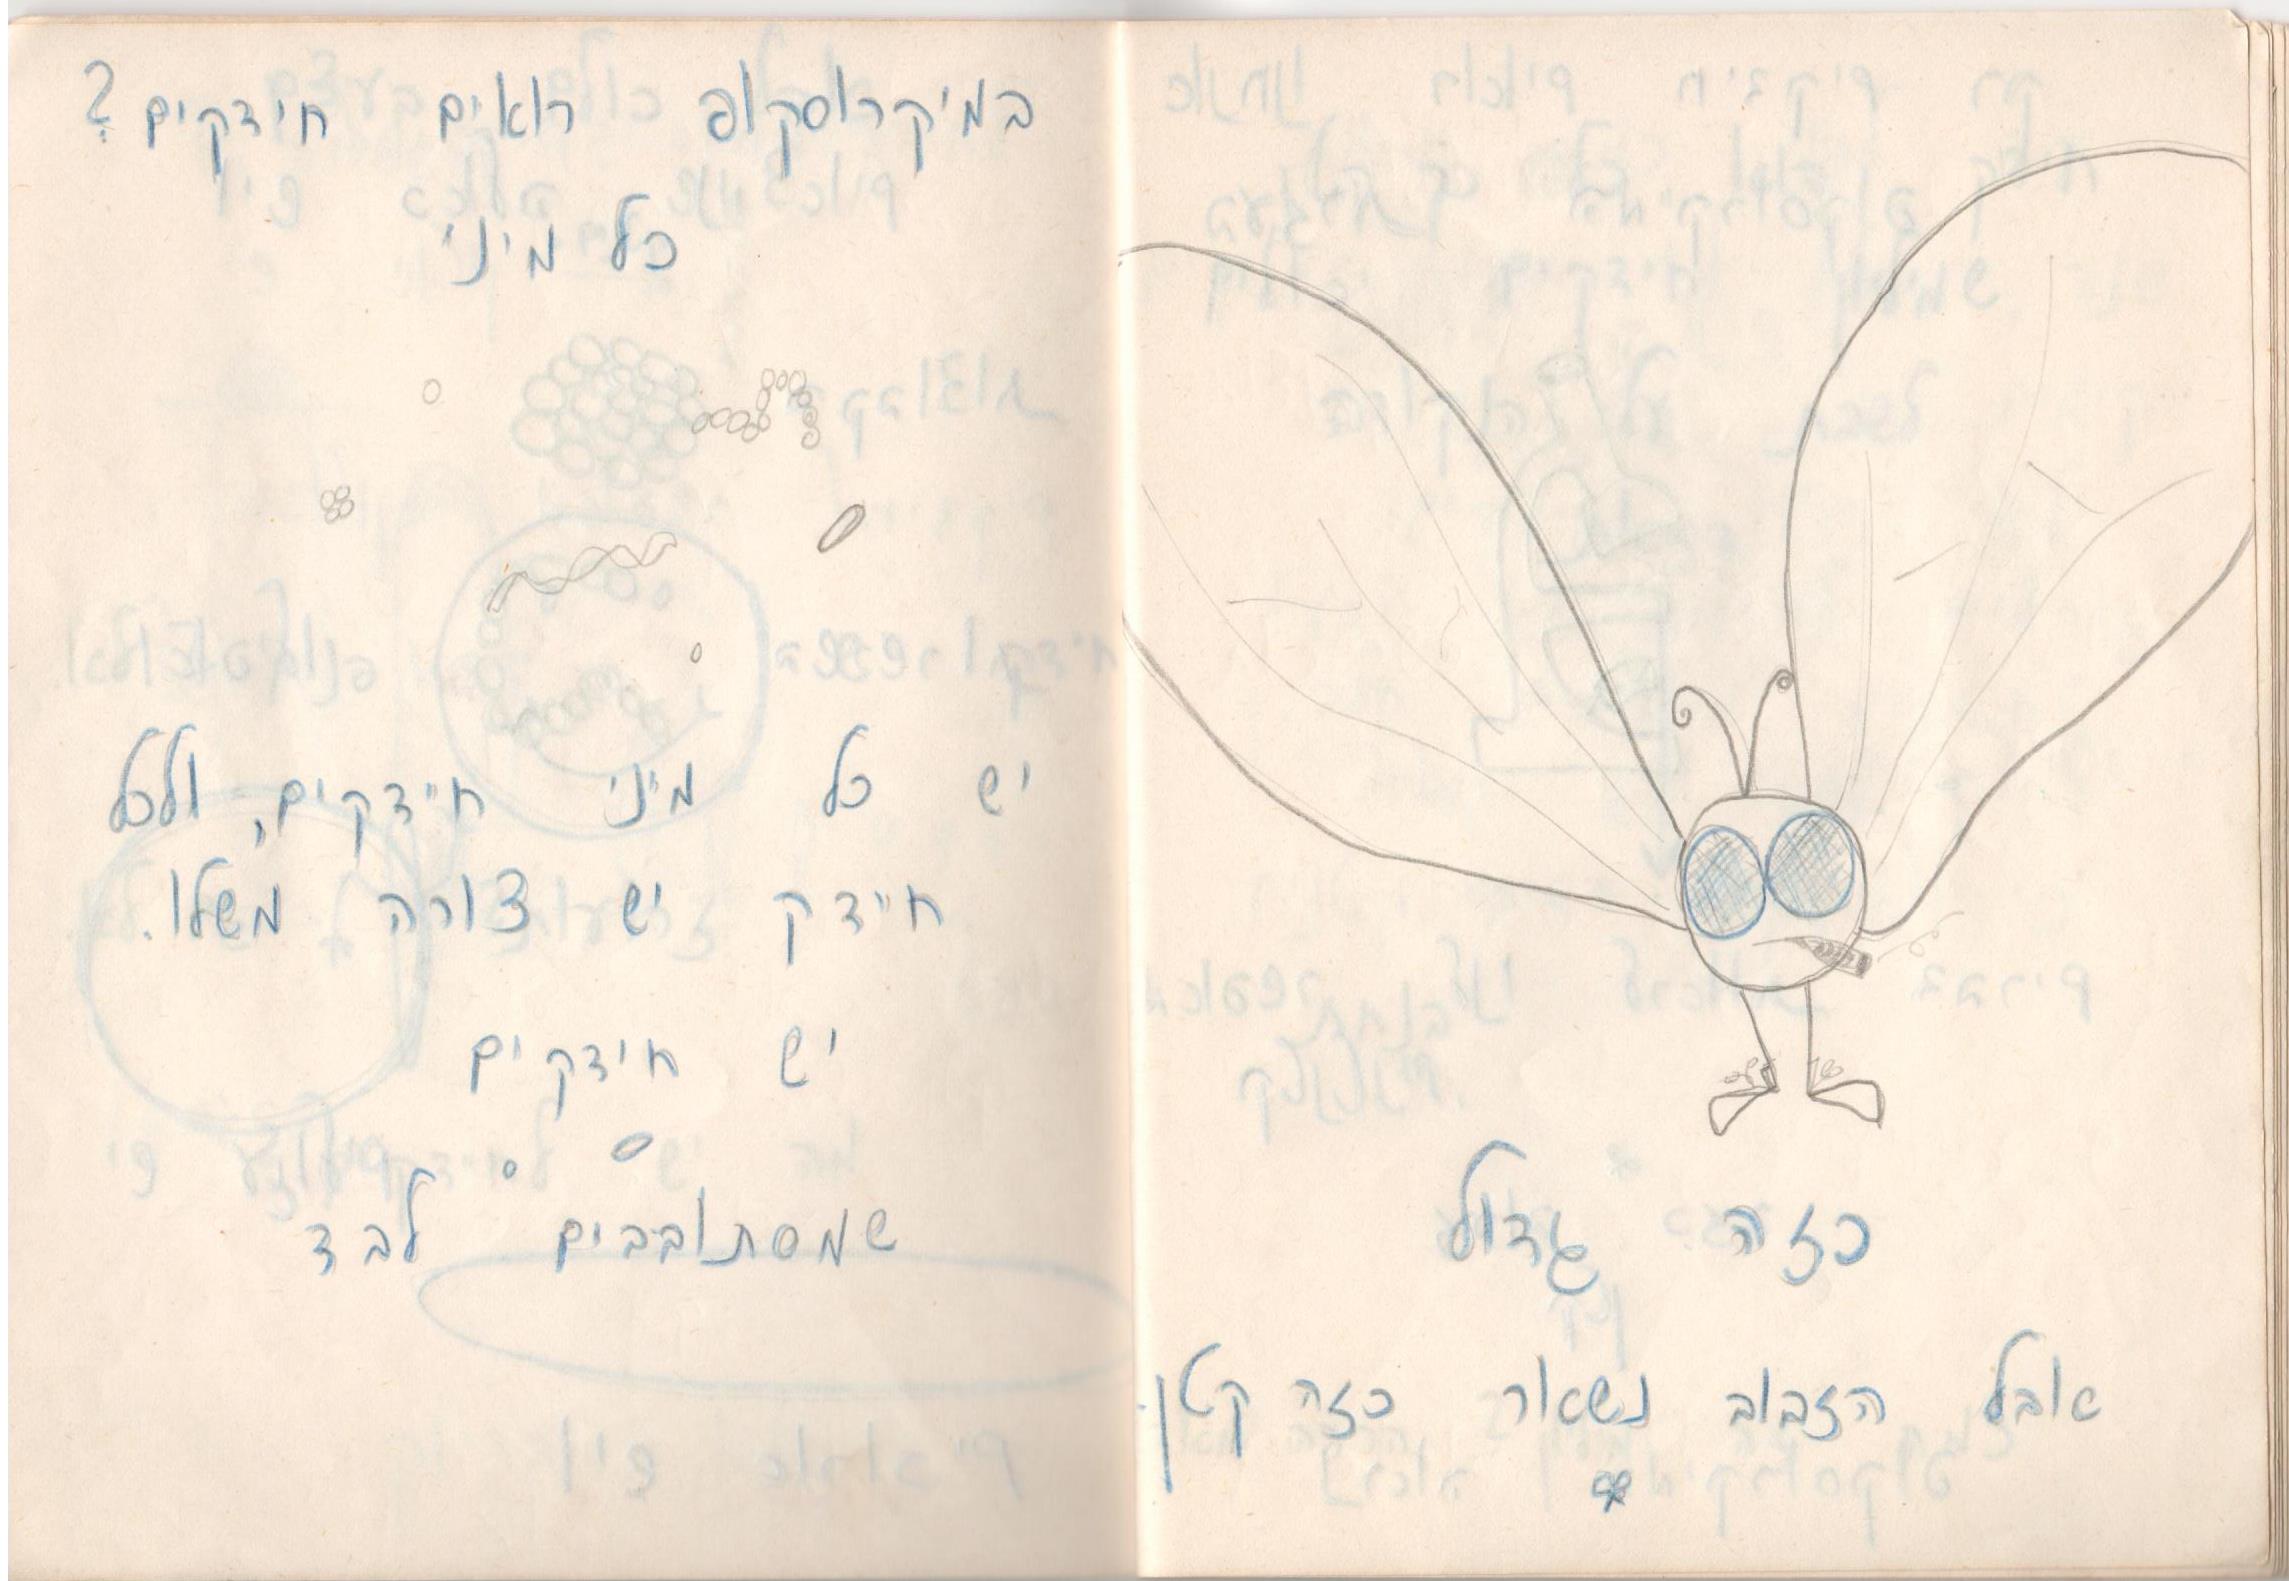 כזה גדול
אבל הזבוב נשאר כזה קטן.
במיקרוסקופ רואים חידקים?
כל מיני
יש כל מיני חיידקים, ולכל
חיידק יש צורה משלו.
יש חידקים
שמסתובבים לבד